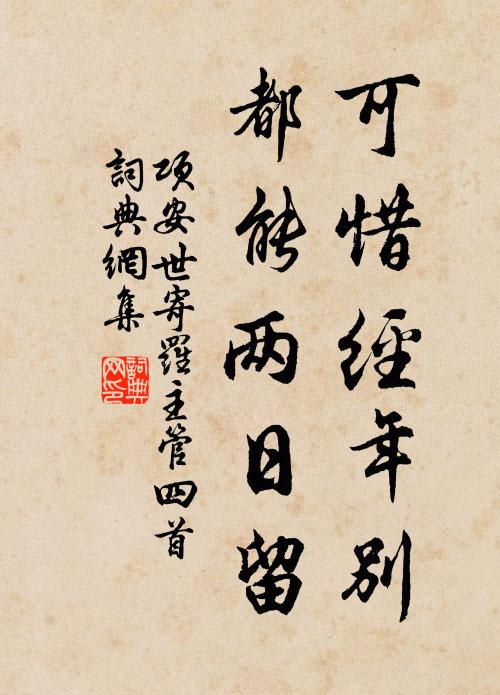 可惜經年別
都能两日留
項安世寄羅主管四首
詞典網集
詞典网印